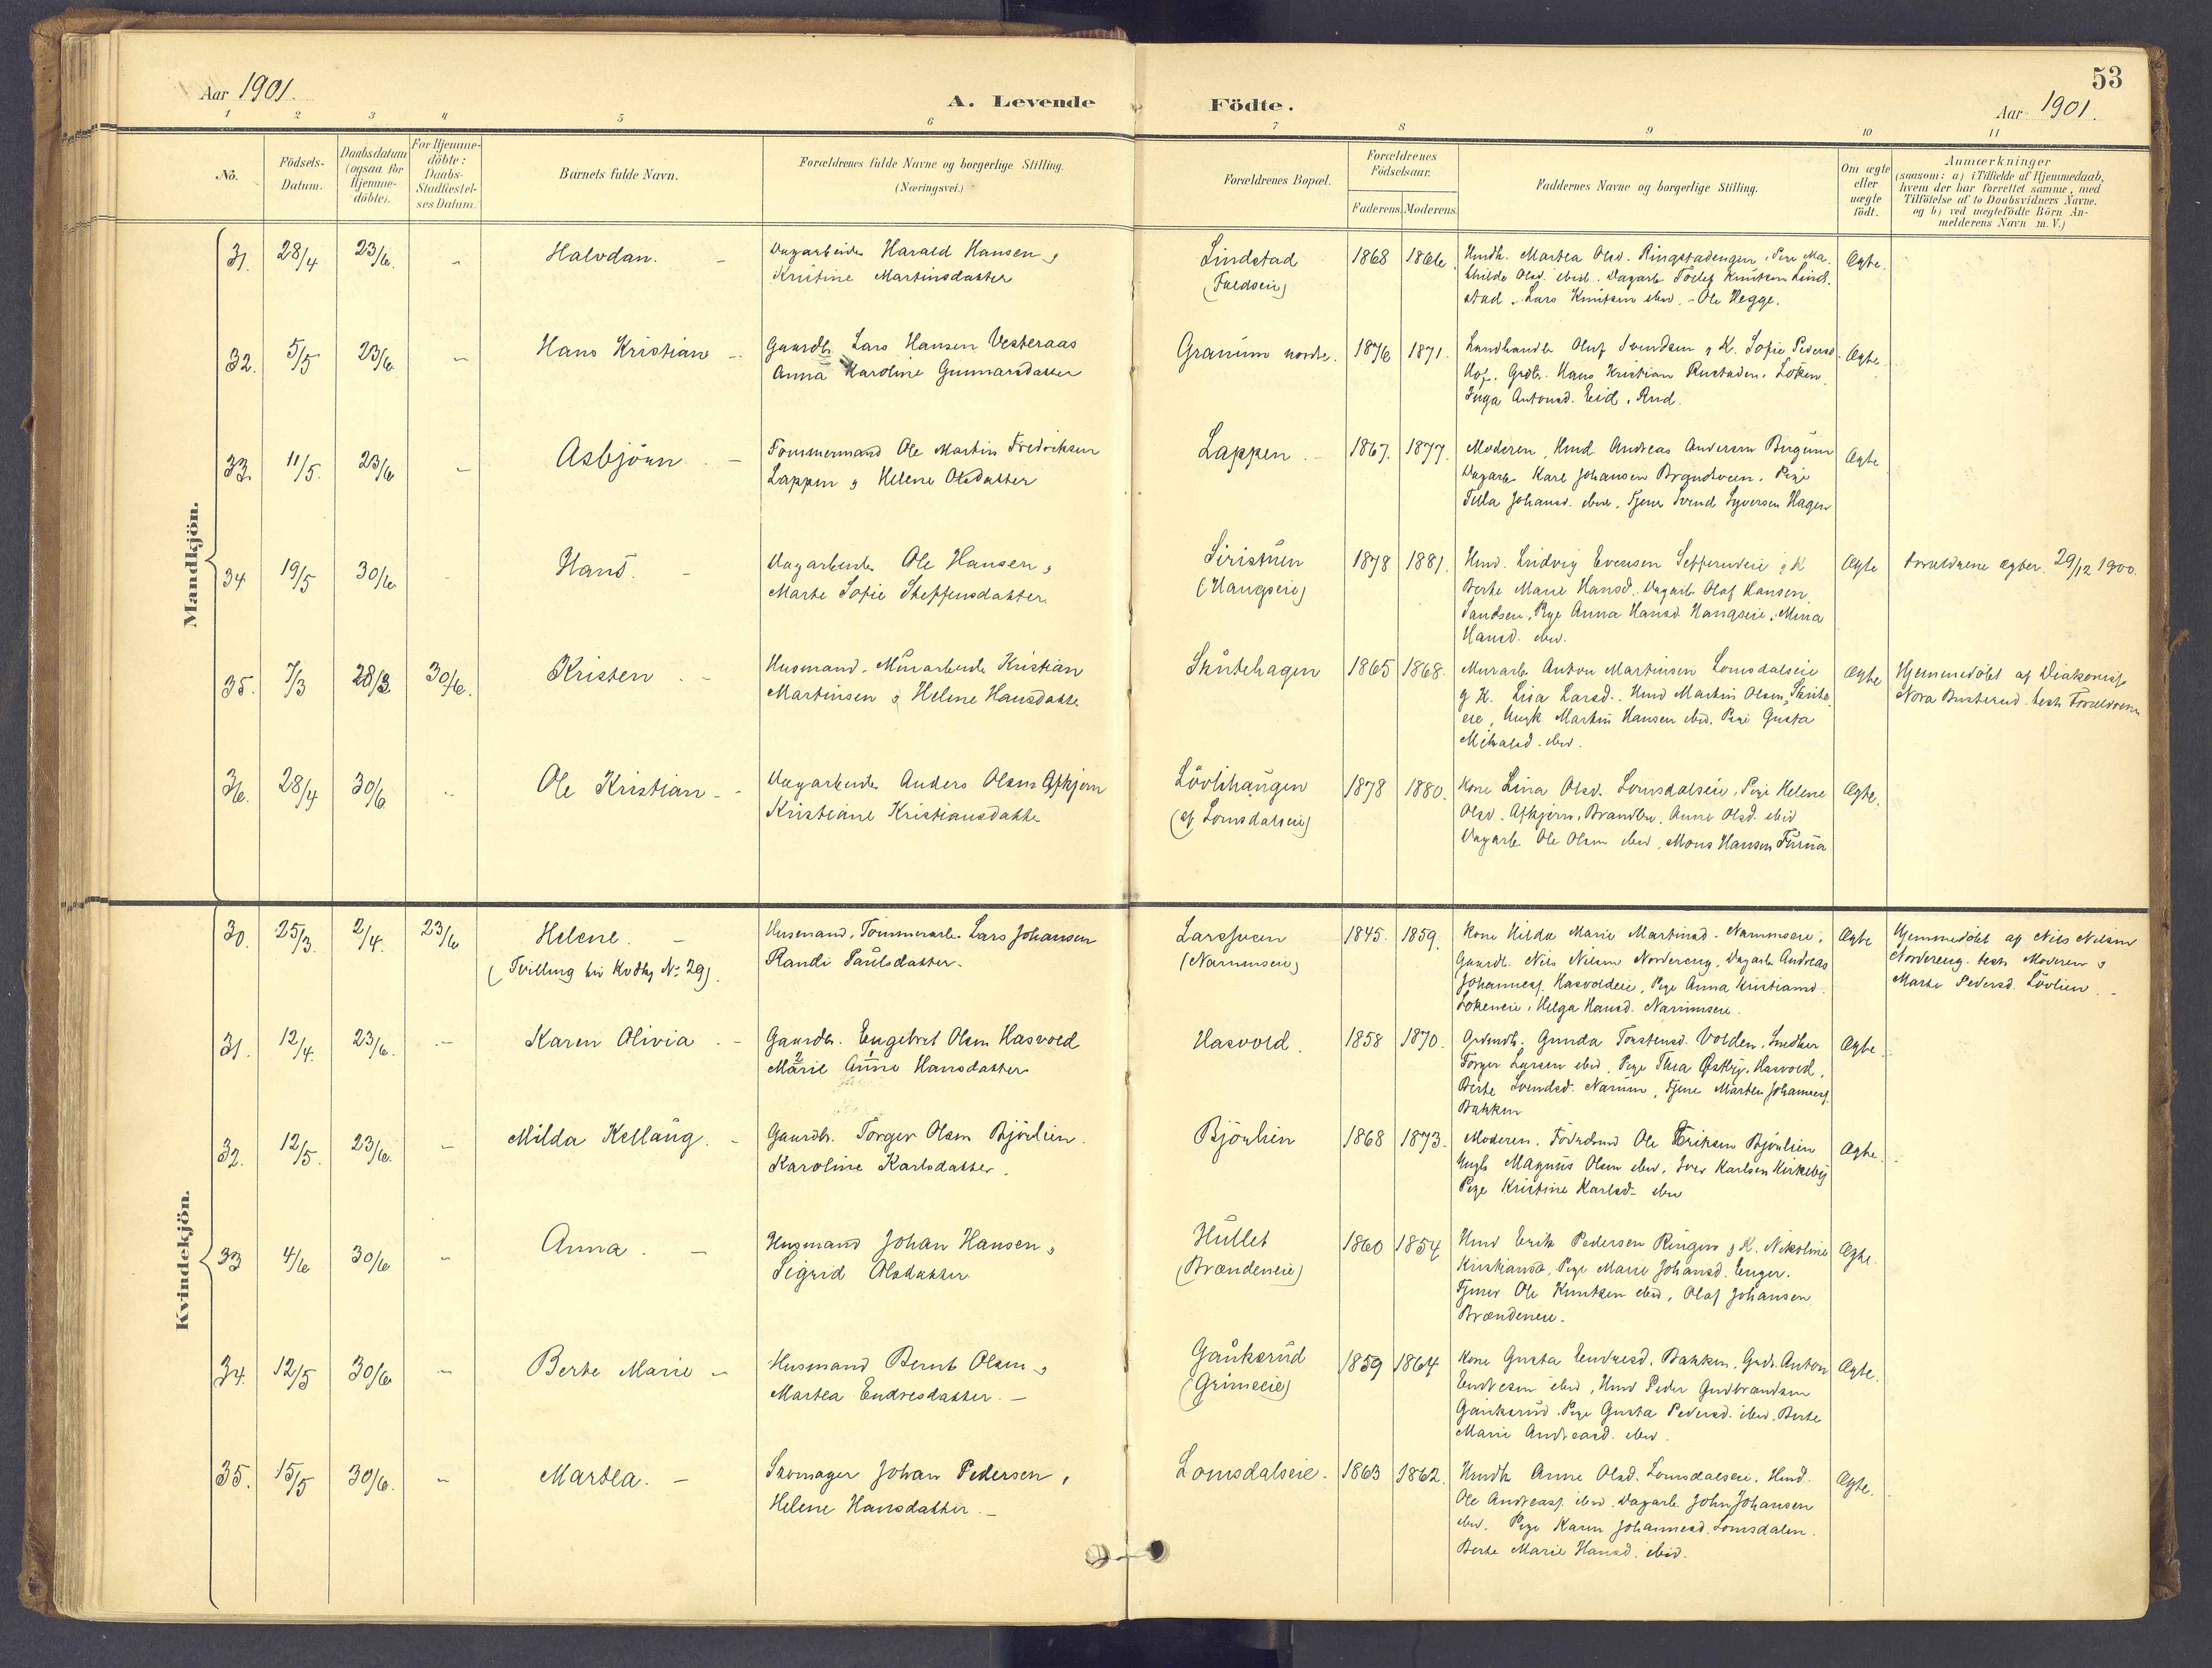 53
Aar 1901.
A. Levende Födte.
Aar 1901.
1 2 3 4 5 6 7 8 9 10 11
No.
Födsels-
Datum.
Daabsdatum
(ogsaa for
Hjemme-
döbte).
For Hjemme-
döbte:
Daabs-
Stadfæstel-
ses Datum.
Barnets fulde Navn.
Forældrenes fulde Navne og borgerlige Stilling.
(Næringsvei.)
Forældrenes Bopæl.
Forældrenes
Födselsaar.
Faderens. Moderens.
Faddernes Navne og borgerlige Stilling.
Om ægte
eller
uægte
födt.
Anmærkninger
(saasom: a) i Tilfælde af Hjemmedaab,
hvem der har forrettet samme, med
Tilföielse af to Daabsvidners Navne,
og b) ved uægtefödte Börn An-
melderens Navn m. V.)
Mandkjön.
31. 28/4 23/6. - Halvdan. -
Dagarbeider Harald Hansen,
Kristine Martinsdatter
Lindstad
1868
Hmdk. Martea Olsd. Ringstadengen, Pige Ma-
thilde Olsd. ibid. Dagarb. Tollef Knutsen Lind-
stad. Lars Knutsen ibid. - Ole Hegge.
Ægte.
32. 5/5 23/6. - Hans Kristian -
Gaardbr. Lars Hansen Vesteraas
Anna Karoline Gunnarsdatter
Granum nordre. 1876 1871.
Landhandler Oluf Svendsen & K. Sofie Pedersd.
Hof. Grdbr. Hans Kristian Rustaden. Löken
Inga Antonsd. Eid, Rud.
Ægte
33. 11/5. 23/6 - Asbjörn. -
Tömmermand Ole Martin Fredriksen
Lappen & Helene Olsdatter
Lappen. - 1867. 1877.
Moderen, Hmd. Andreas Andersen Bergum
Dagarb. Karl Johansen Brandveen. Pige
Tilla Johansd. ibid. Tjener Svend Syversen Hagen
Ægte
34 19/5 30/6 - Hans. -
Dagarbeider Ole Hansen,
Marte Sofie Steffensdatter.
Siristuen
(Haugseie)
1878 1881.
Hmd. Ludvig Evensen & K
Berte Marie Hansd. Dagarb. Olaf Hansen
Sandseie, Pige Anna Hansd. Haugseie, Mina
Hansd. ibid.
Ægte
Forældrene ægtev. 29/12 1900.
35. 7/3 28/3 30/6. Kristen -
Husmand, Murarbeider Kristian
Martinsen & Helene Hansdatter
Skutehagen 1865 1868.
Murarb. Anton Martinsen Lomsdalseie
& K. Lisa Larsd. Hmd Martin Olsen, Skute-
eie, Ungk Martin Hansen ibid. Pige Gusta
ibid.
Ægte
Hjemmedöbt af Diakonisse
Nora Busterud. test. Forældrene
36. 28/4 30/6 - Ole Kristian -
Dagarbeider Anders Olsen Afkjern
Kristiane Kristiansdatter
Lövlihaugen
(af Lomsdalseie)
1878 1880.
Kone Lina Olsd. Lomsdalseie, Pige Helene
Olsd. Afkjern, Brandbu. Anne Olsd. ibid
Dagarb. Ole Olsen ibid. Mons Hansen Furua
Ægte.
Kvindekjön.
30. 25/3. 2/4. 23/6 Helene. -
(Tvilling
Husmand, Tömmerarb. Lars Johansen
Randi Paulsdatter.
Larsjveen
1845. 1859.
Kone Hilda Marie Martinsd. Narumseie,
Gaardb. Nils Nilsen Nordereng, Dagarb Andreas
Johannesf. Hasvoldeie, Pige Anna Kristiansd.
Lökeneie, Helga Hansd. Narumseie.
Ægte
Hjemmedöbt af Nils Nilsen
Nordereng. test. Moderen &
Marte Pedersd. Lövlien. -
31. 12/4. 23/6. - Karen Olivia. -
Gaardbr. Engebret Olsen Hasvold
2 1
Marie Anne Hansdatter
Hasvold. 1858 1870.
Gunda Torstensd. Volden, Snedker
Torger Larsen ibid, Pige Thea Östby, Hasvold,
Berte Svendsd. Narum, Tjener Martin Johannesf.
Bakken
Ægte
32. 12/5. 23/6. - Milda Kellaug. -
Gaardbr. Torger Olsen Bjönlien.
Karoline Karlsdatter.
Bjönlien 1868 1873.
Moderen. Föderåmd Ole Eriksen Bjönlien
Ungk Magnus Olsen ibid, Iver Karlsen Kirkeby
Pige Kristine Karlsd. ibid
Ægte.
33 4/6 30/6 - Anna. -
Husmand Johan Hansen,
Sigrid Olsdatter
Hullet
(Brændeneie)
1860 1854
Hmd Erik Pedersen Ringen & K. Nikoline
Kristiansd, Pige Marie Johansd. Enger.
Tjener Ole Knutsen ibid, Olaf Johansen
Brændeneie.
Ægte.
34. 12/5 30/6 - Berte Marie -
Husmand Bernt Olsen &
Martea Endresdatter. -
Gaukerud
(Grimseie)
1859 1864
Kone Gusta Endresd. Bakken, Grdb. Anton
Endresen ibid, Hmd Peder Gudbrandsen
Gaukerud. Pige Gusta Pedersd. ibid. Berte
Marie Andreasd. ibid.
Ægte.
35. 15/5 30/6. - Martea. -
Skomager Johan Pedersen,
Helene Hansdatter. -
Lomsdalseie. 1863 1862.
Hmdk Anne Olsd. Lomsdalseie, Hmd.
Ole Andreasf. ibid. Dagarb John Johansen
ibid. Pige Karen Johannesd. Lomsdalen.
Berte Marie Hansd. ibid.
Ægte.